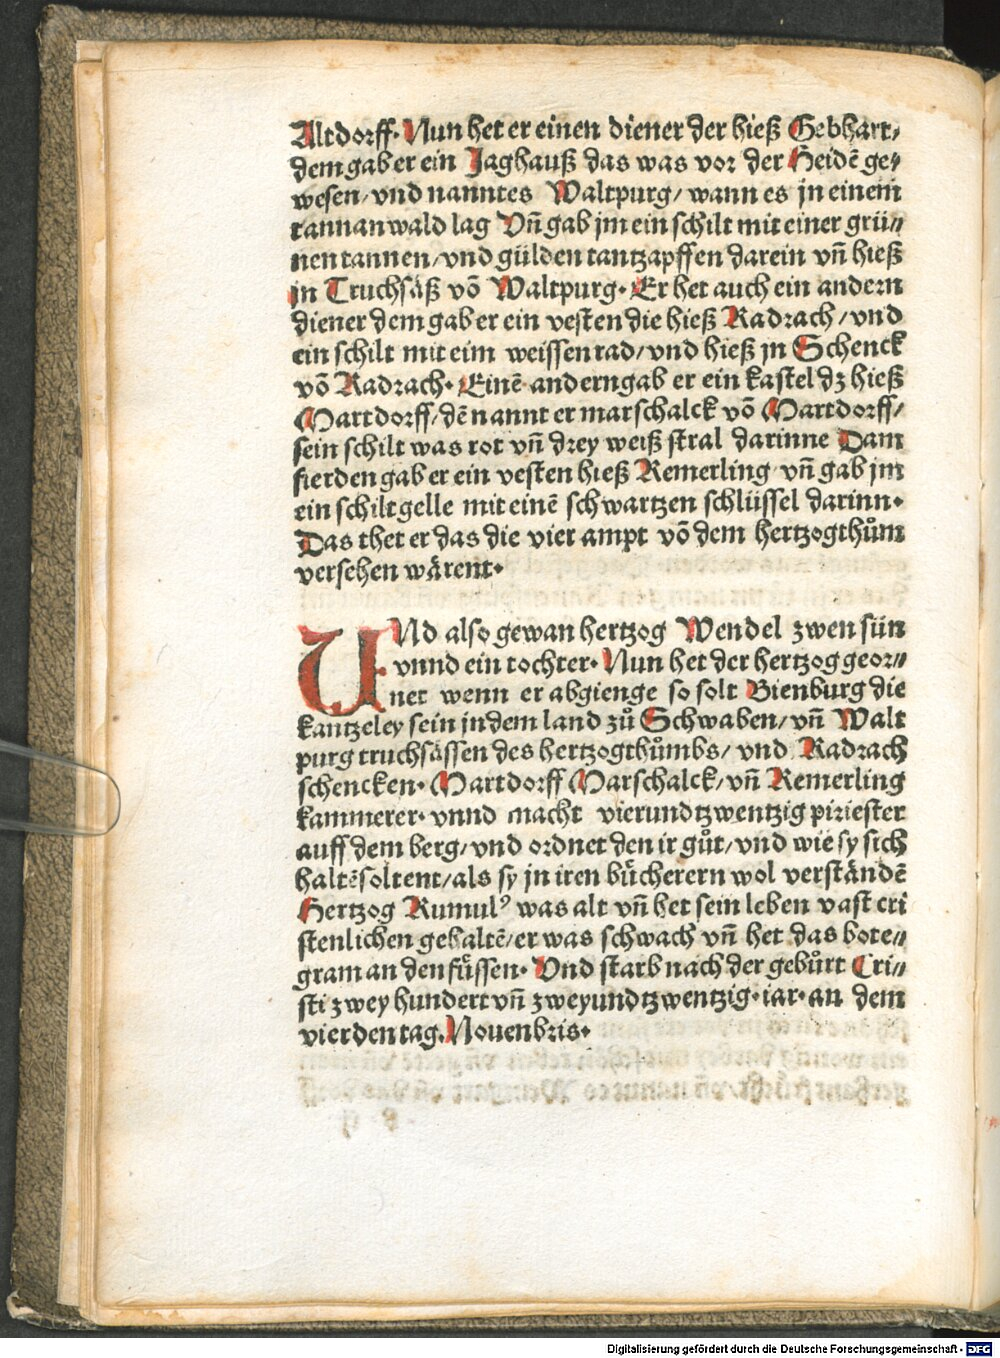 Altdorff. Nun het er einen diener der hieß Gebhart/
dem gab er ein Jaghauß das was vor der Heidē ge⸗
wesen/vnd nanntes Waltpurg/ wann es jn einem
tannan wald lag Vñ gab jm ein schilt mit einer grü⸗
nen tannen/vnd gülden tantzapffen darein vñ hieß
jn Truchsäß vō Waltpurg. Er het auch ein andern
diener dem gab er ein vesten die hieß Radrach/vnd
ein schilt mit eim weissen rad/vnd hieß jn Schenck
vō Radrach. Einē andern gab er ein kastel dz hieß
Martdorff/dē nannt er marschalck vō Martdorff/
sein schilt was rot vñ drey weiß stral darinne Dam
fierden gab er ein vesten hieß Remerling vñ gab jm
ein schilt gelle mit einē schwartzen schlüssel darinn.
Das thet er das die vier ampt vō dem hertzogthům
versehen wärent.
UNd also gewan hertzog Wendel zwen sün
vnnd ein tochter. Nun het der hertzog geor⸗
net wenn er abgienge so solt Bienburg die
kantzeley sein jn dem land zů Schwaben/vñ Walt
purg truchsässen des hertzogthůmbs/ vnd Radrach
schencken. Martdorff Marschalck/vñ Remerling
kammerer. vnnd macht vierundtzwentzig piriester
auff dem berg/vnd ordnet den ir gůt/vnd wie sy sich
haltē soltent/als sy jn iren bůcherern wol verständē
Hertzog Rumulꝰ was alt vñ het sein leben vast cri
stenlichen gehaltē/er was schwach vñ het das bote⸗
gram an den fůssen. Vnd starb nach der gebůrt Cri⸗
sti zwey hundert vñ zweyundtzwentzig.iar.an dem
vierden tag.Nouenbris.
Digitalisierung gefördert durch die Deutsche Forschungsgemeinschaft - DFG